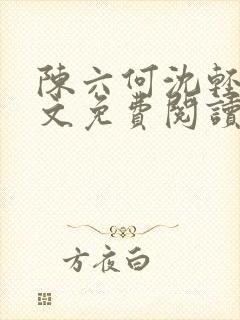 陳六何沈輕
文免費閱讀
方夜白